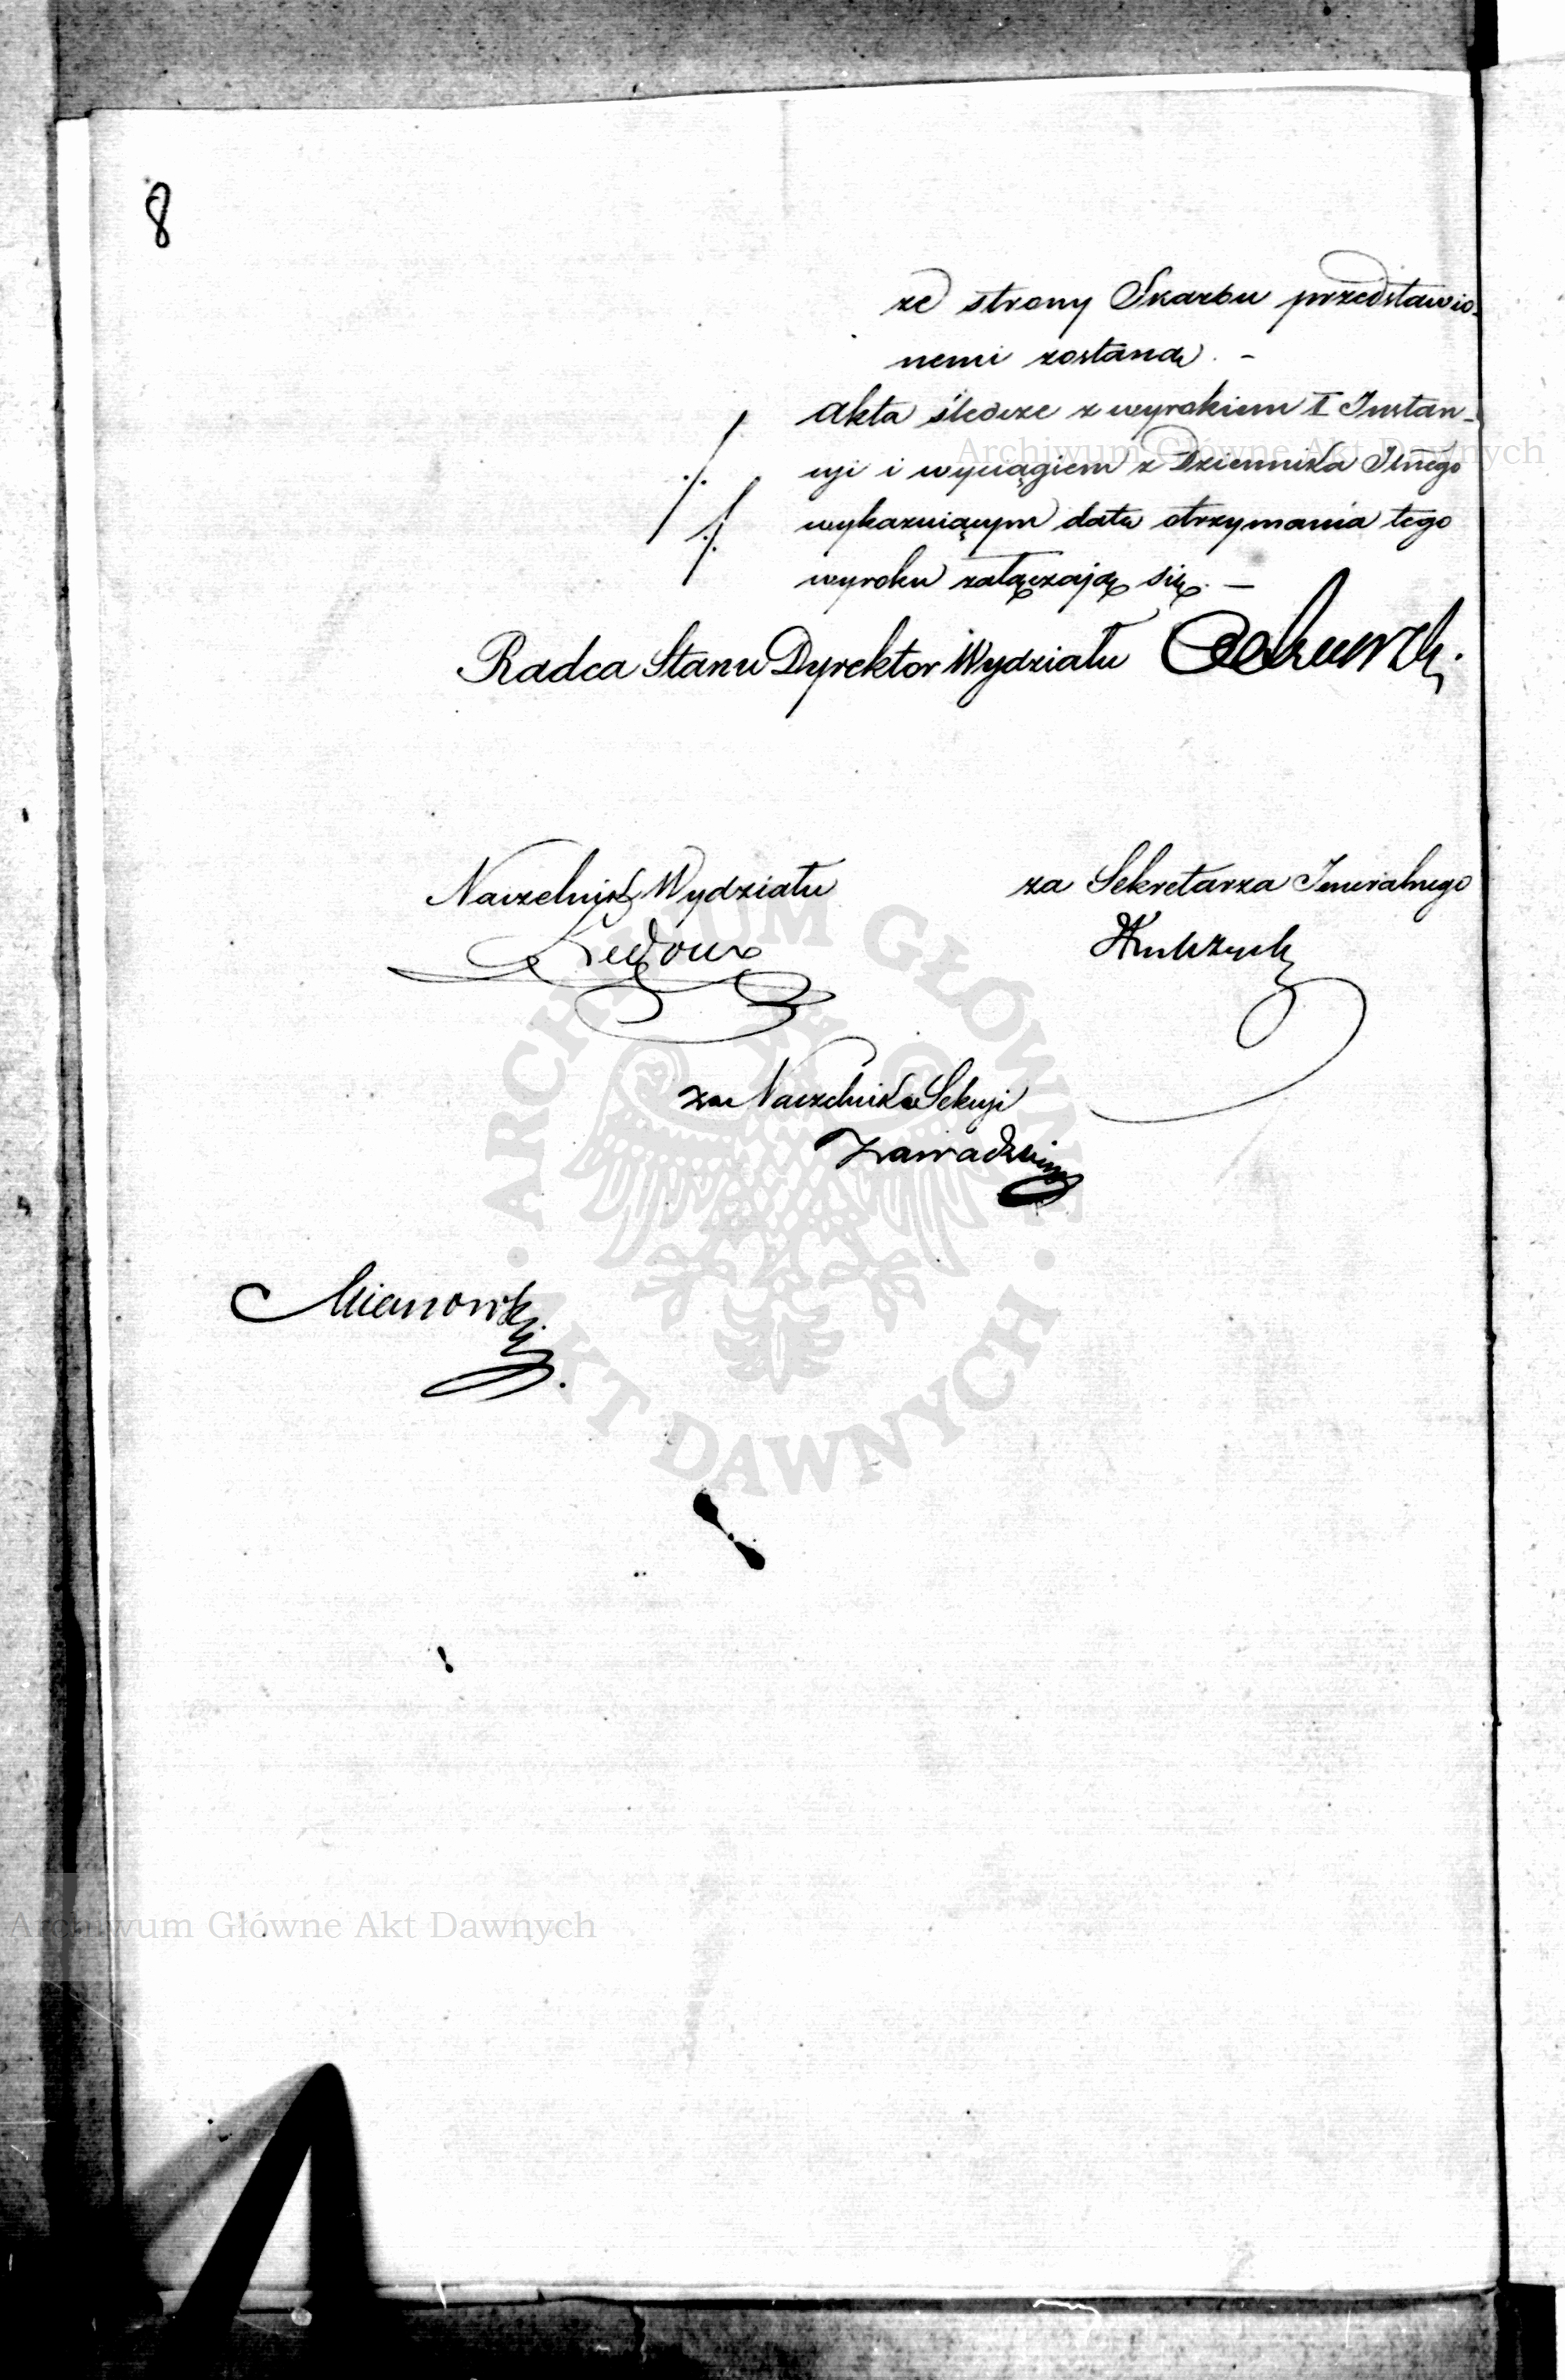 8
ze strony Skarbu przedstawio-
nemi zostaną. -
Akta śledcze z wyrokiem I Instan-
Archiwum Główne Akt Dawnych
cyi i wyciągiem z Dziennika
wykazuiącym datę otrzymania tego
wyroku załączają się. —
Radca Stanu Dyrektor Wydziału
Naczelnik Wydziału
za Sekretarza Jeneralnego
Ledoux
za Naczelnika Sekcyi
Zawadzki
Mianowski
ARCHIWUM GŁÓWNE
AKT DAWNYCH
Archiwum Główne Akt Dawnych